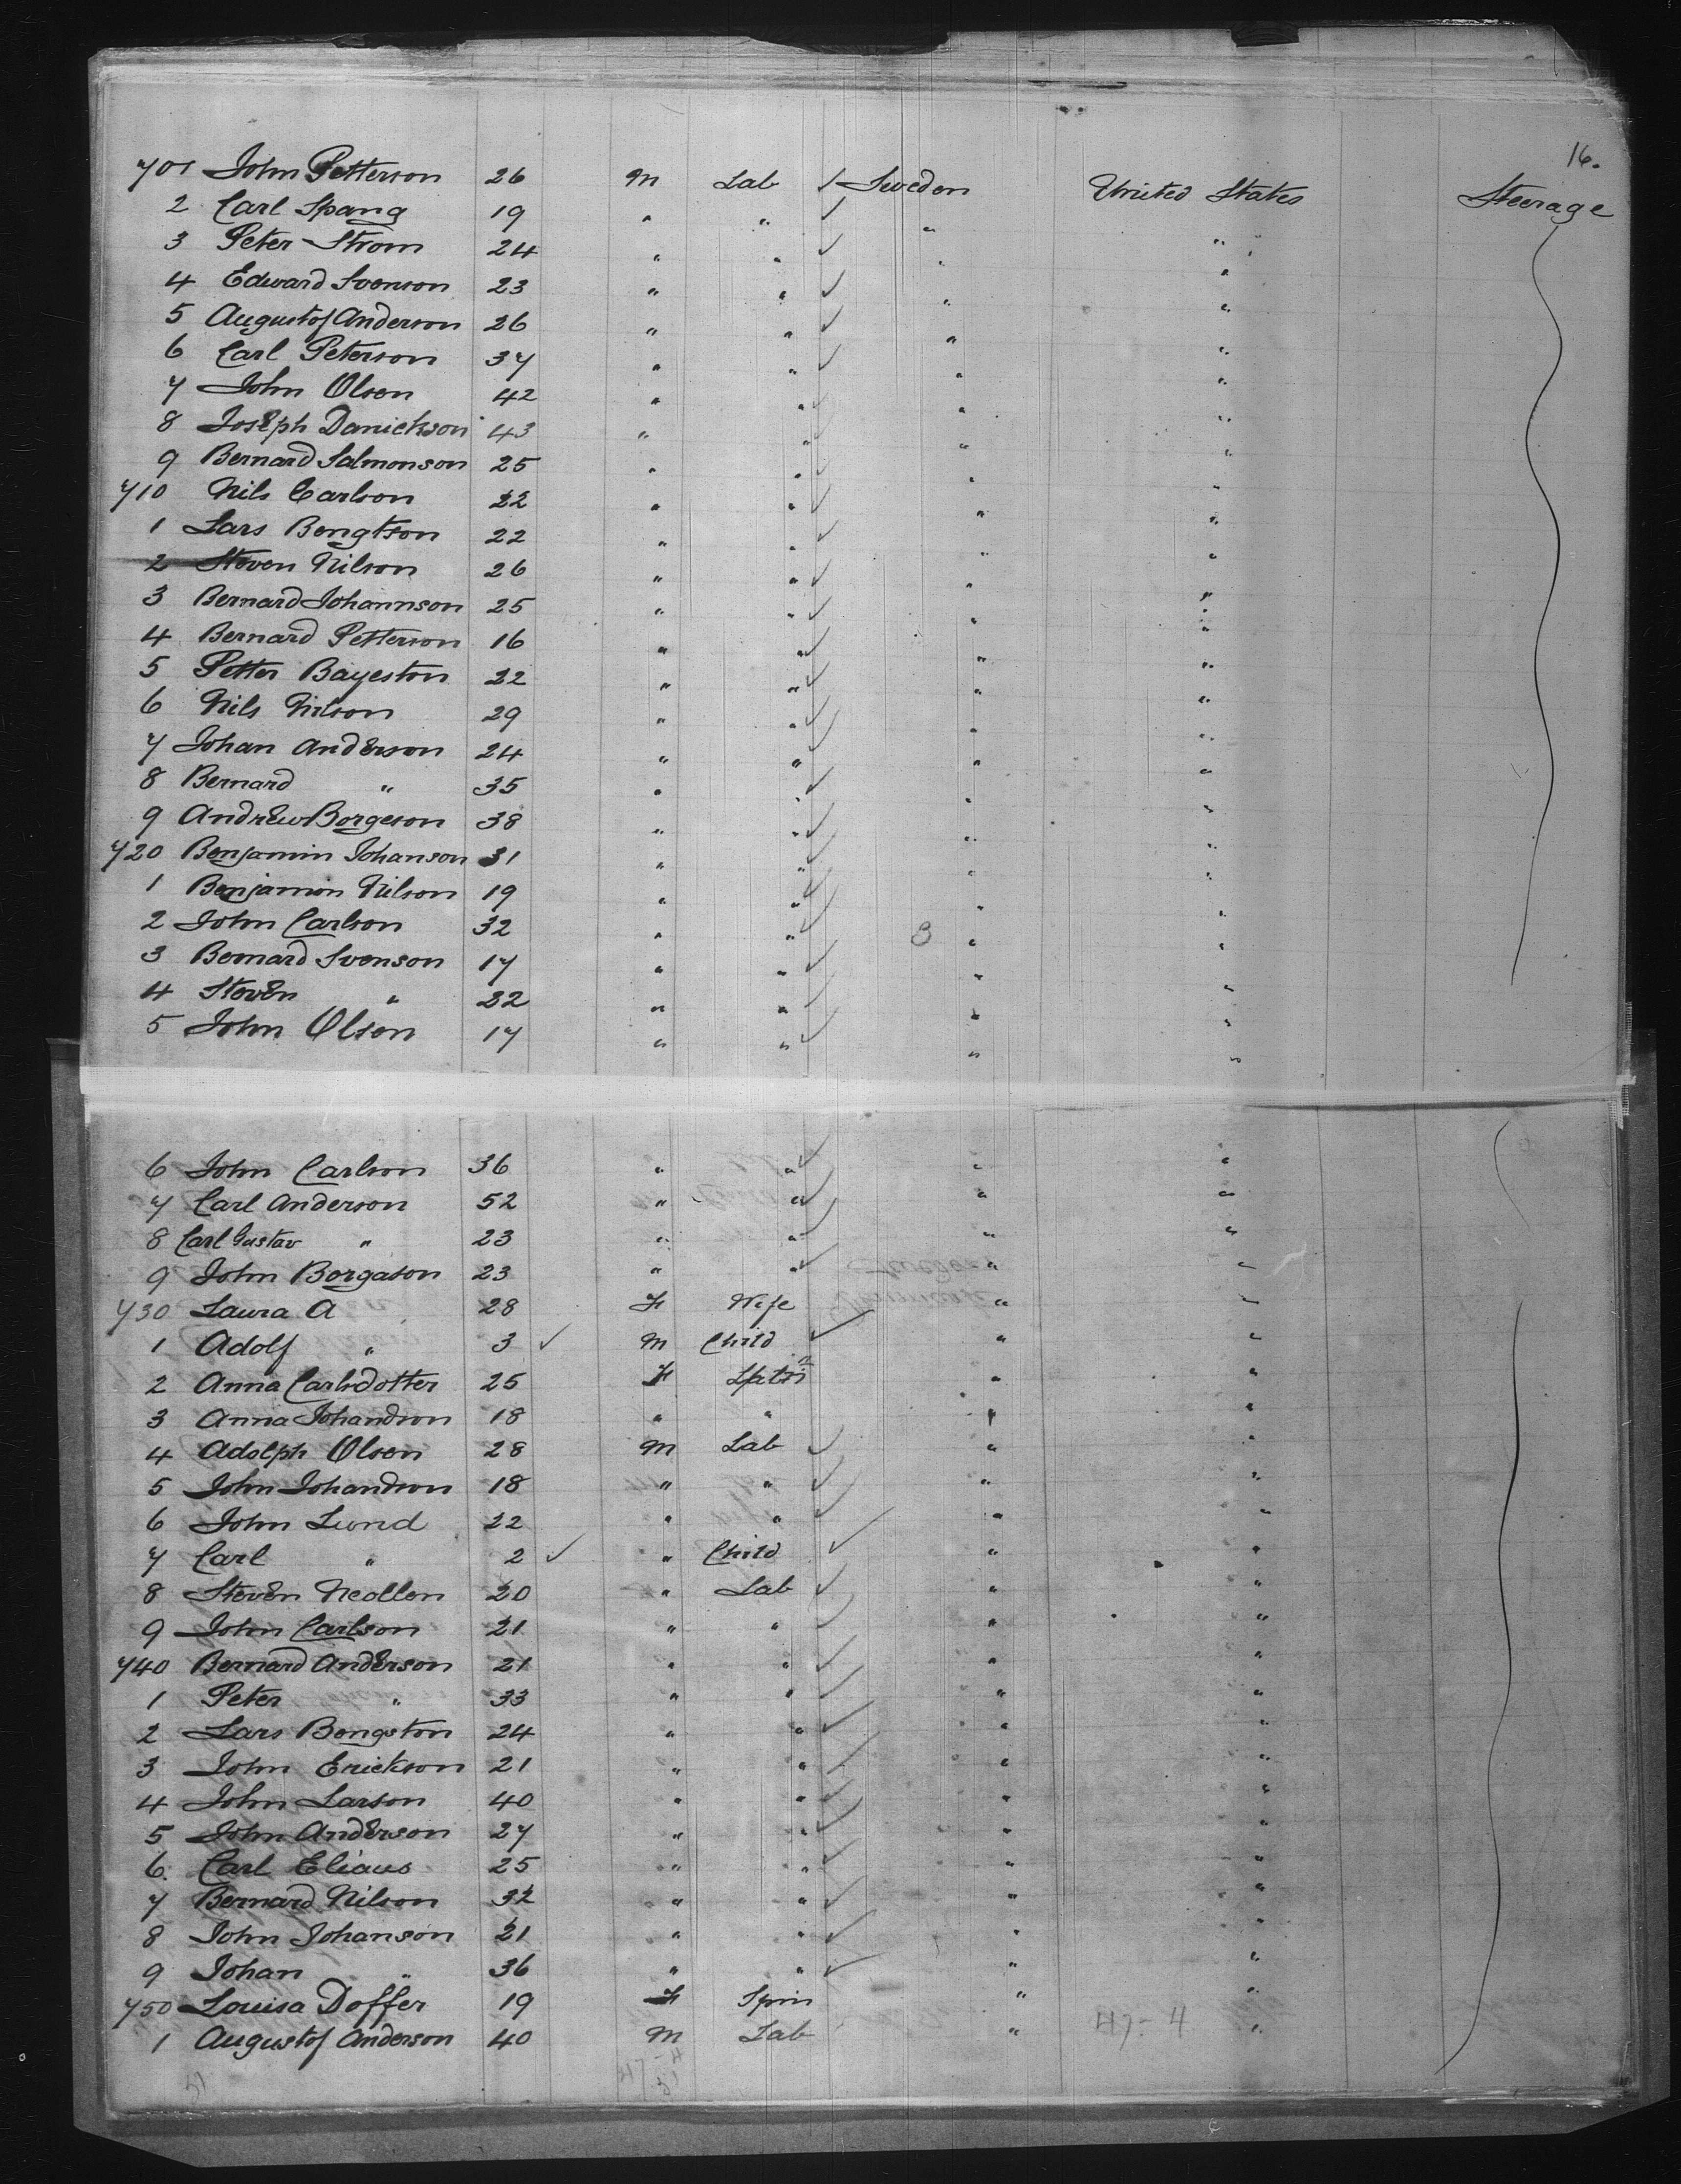 16.
701 John Petterson 26 M Lab ✓ Sweden United States Steerage
2 Carl Spang 19 " " ✓ " "
3 Peter Strom 24 " " ✓ " "
4 Edward Svenson 23 " " ✓ " "
5 Augustof Anderson 26 " " ✓ " "
6 Carl Peterson 37 " " ✓ " "
7 John Olsen 42 " " ✓ " "
8 Joseph Danickson 43 " " ✓ " "
9 Bernard Salmonson 25 " " ✓ " "
710 Nils Carlson 22 " " ✓ " "
1 Lars Bengtson 22 " " ✓ " "
2 Steven Nilson 26 " " ✓ " "
3 Bernard Johannson 25 " " ✓ " "
4 Bernard Petterson 16 " " ✓ " "
5 Petter Bayeston 22 " " ✓ " "
6 Nils Nilson 29 " " ✓ " "
7 Johan Anderson 24 " " ✓ " "
8 Bernard " 35 " " ✓ " "
9 Andrew Borgeson 38 " " ✓ " "
720 Benjamin Johanson 31 " " ✓ " "
1 Benjamin Nilson 19 " " ✓ " "
2 John Carlson 32 " " ✓ 3 " "
3 Bernard Svenson 17 " " ✓ " "
4 Steven " 22 " " ✓ " "
5 John Olson 17 " " ✓ " "
6 John Carlson 36 " " ✓ " "
7 Carl Anderson 52 " " ✓ " "
8 Carl Gustav " 23 " " ✓ " "
9 John Borgason 23 " " ✓ " "
730 Laura A 28 F Wife " "
1 Adolf " 3 ✓ M Child ✓ " "
2 Anna Carlsdotter 25 F " "
3 Anna Johandson 18 " " " "
4 Adolph Olsen 28 M Lab ✓ " "
5 John Johandson 18 " " ✓ " "
6 John Lund 22 " " ✓ " "
7 Carl " 2 ✓ " Child ✓ " "
8 Steven Neollen 20 " Lab ✓ " "
9 John Carlson 21 " " ✓ " "
740 Bernard Anderson 21 " " ✓ " "
1 Peter " 33 " " ✓ " "
2 Lars Bengston 24 " " ✓ " "
3 John Erickson 21 " " ✓ " "
4 John Larson 40 " " ✓ " "
5 John Anderson 27 " " ✓ " "
6 Carl Eliaus 25 " " ✓ " "
7 Bernard Nilson 32 " " ✓ " "
8 John Johanson 21 " " ✓ " "
9 Johan " 36 " " ✓ " "
750 Louisa Doffer 19 F Spin " "
1 Augustof Anderson 40 M Lab " 47-4 "
51